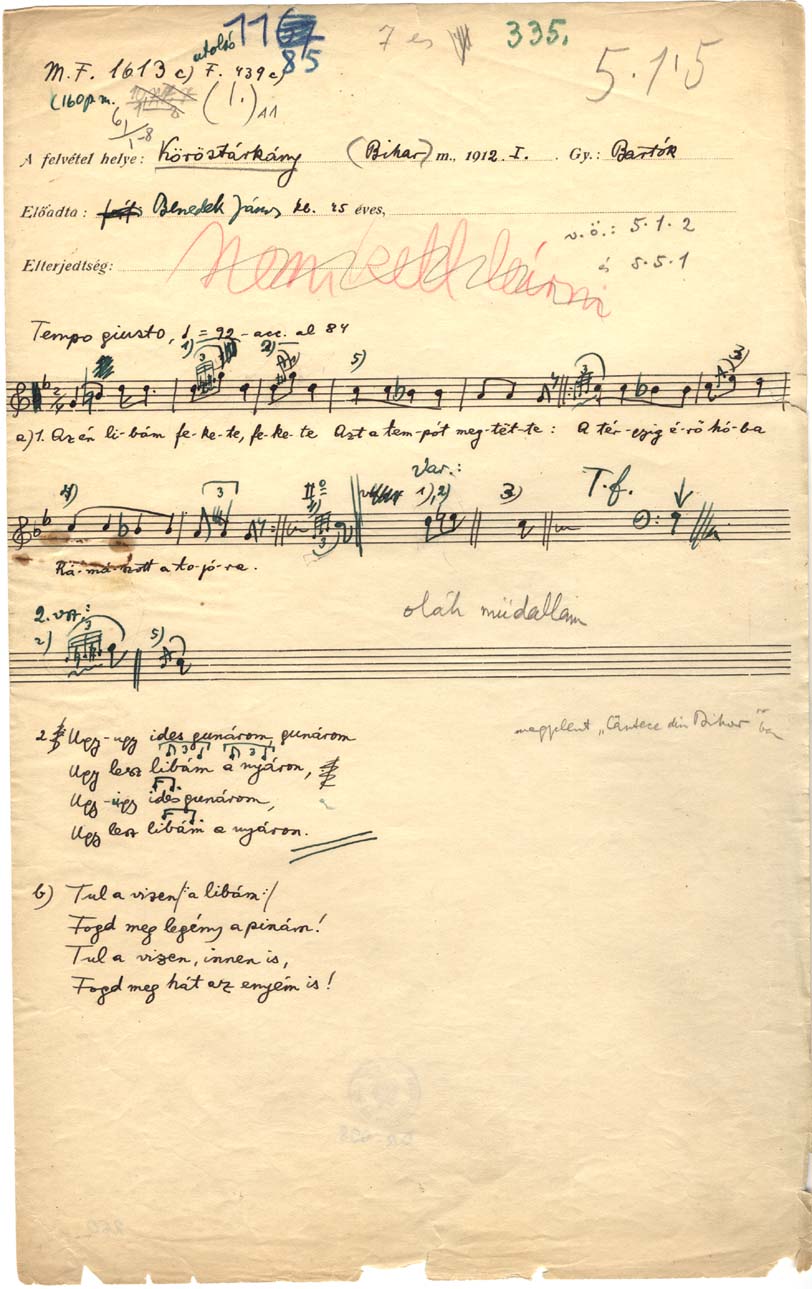 1185
7 es
335.
5.1.5
M.F. 1613 c) utolsó F. 439 c)
(160 p.m.
(1.)
6/1-8
A felvétel helye: Köröstárkány (Bihar) m., 1912. I. Gy.: Bartók
Előadta: Benedek János kb. 45 éves,
v.ö.: 5.1.2
Elterjedtség: nem kell leírni
és 5.5.1
Tempo giusto, = 92 - acc. al 84
1) 3 2) 5) 3)
a) 1. Az én li-bám fe-ke-te, fe-ke-te Azt a tem-pót meg-tët-te: A tér-gyig é-rő hó-ba
4) 3 Var.: 1), 2) 3) T.f.
Rá-má-szott a to-jó-ra.
2. vsz.:
oláh műdallam
2) 3 5)
megjelent „Cântece din Bihor"-ban
2. Ugy-ugy ides gunárom, gunárom
Ugy lesz libám a nyáron,
Ugy-ugy ides gunárom,
Ugy lesz libám a nyáron.
b) Tul a vizen /: a libám :/
Fogd meg legény a pinám!
Tul a vizen, innen is,
Fogd meg hát az enyém is!